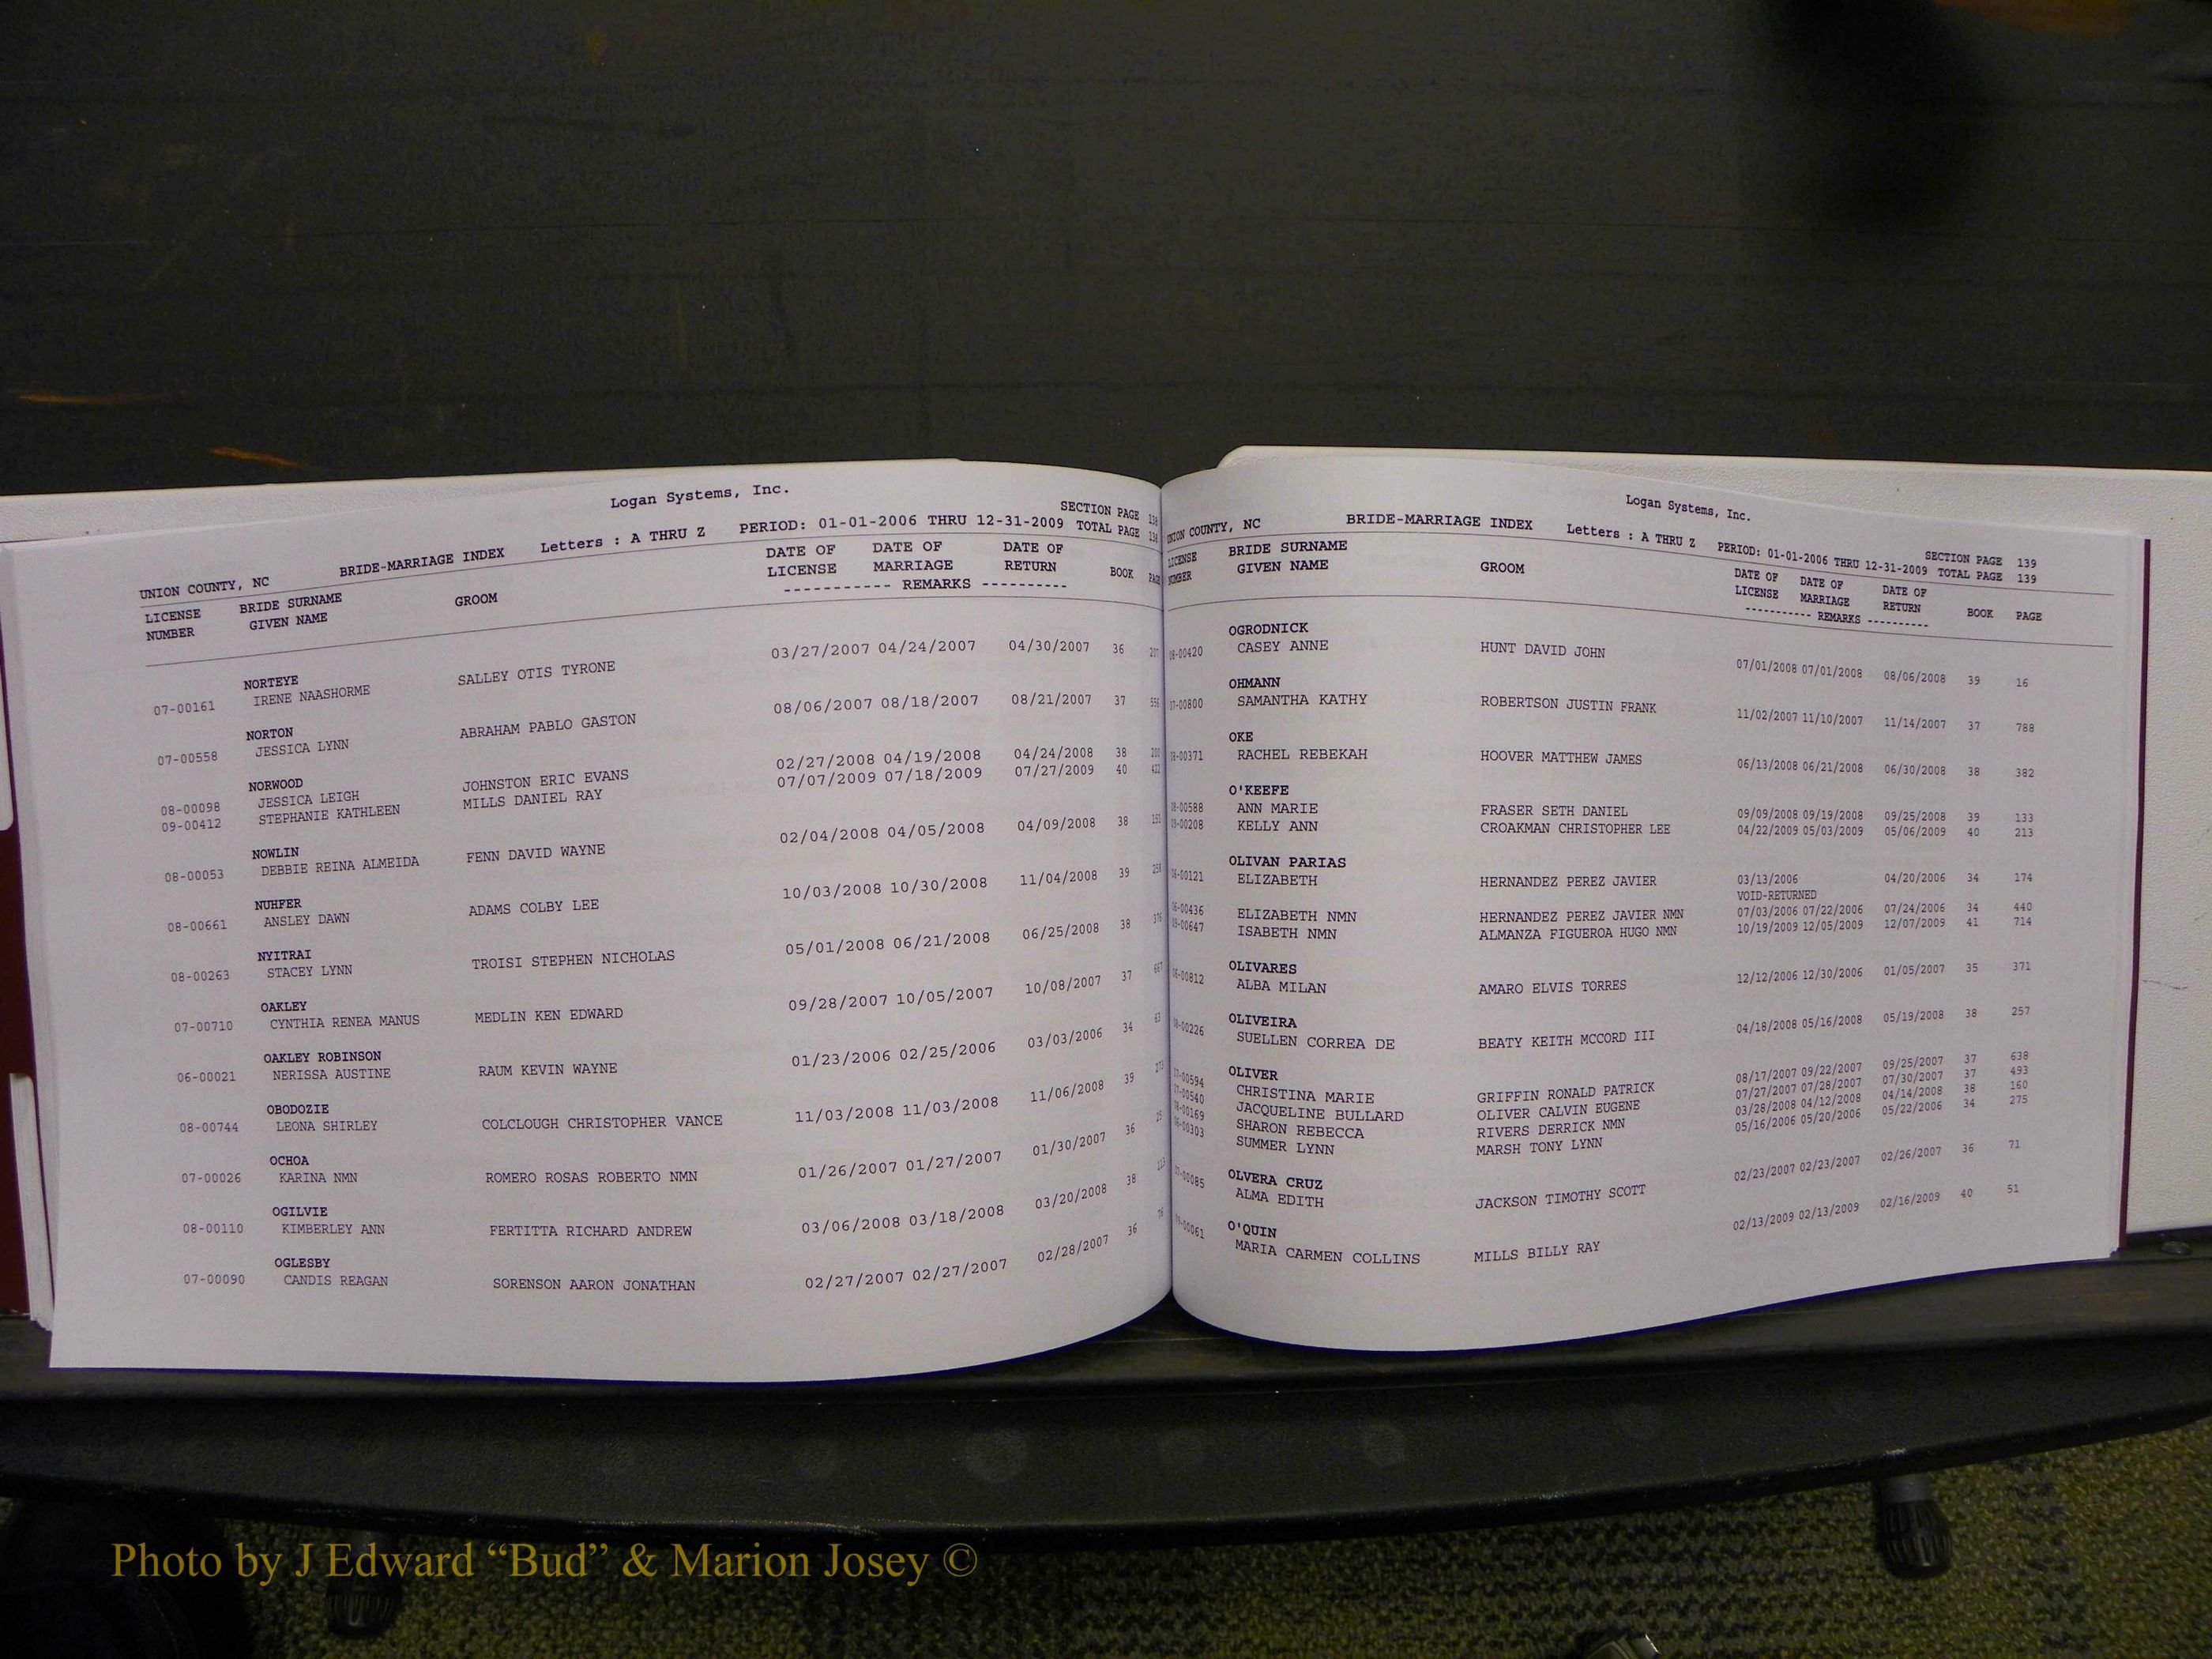 Logan Systems, Inc.
SECTION PAGE 138
UNION COUNTY, NC BRIDE-MARRIAGE INDEX Letters : A THRU Z PERIOD: 01-01-2006 THRU 12-31-2009 TOTAL PAGE 138
LICENSE BRIDE SURNAME GROOM DATE OF DATE OF DATE OF
NUMBER GIVEN NAME LICENSE MARRIAGE RETURN BOOK PAGE
----------- REMARKS ----------
NORTEYE
07-00161 IRENE NAASHORME SALLEY OTIS TYRONE 03/27/2007 04/24/2007 04/30/2007 36
NORTON
07-00558 JESSICA LYNN ABRAHAM PABLO GASTON 08/06/2007 08/18/2007 08/21/2007 37
NORWOOD
08-00098 JESSICA LEIGH JOHNSTON ERIC EVANS 02/27/2008 04/19/2008 04/24/2008 38
09-00412 STEPHANIE KATHLEEN MILLS DANIEL RAY 07/07/2009 07/18/2009 07/27/2009 40
NOWLIN
08-00053 DEBBIE REINA ALMEIDA FENN DAVID WAYNE 02/04/2008 04/05/2008 04/09/2008 38
NUHFER
08-00661 ANSLEY DAWN ADAMS COLBY LEE 10/03/2008 10/30/2008 11/04/2008 39
NYITRAI
08-00263 STACEY LYNN TROISI STEPHEN NICHOLAS 05/01/2008 06/21/2008 06/25/2008 38
OAKLEY
07-00710 CYNTHIA RENEA MANUS MEDLIN KEN EDWARD 09/28/2007 10/05/2007 10/08/2007 37
OAKLEY ROBINSON
06-00021 NERISSA AUSTINE RAUM KEVIN WAYNE 01/23/2006 02/25/2006 03/03/2006 34
OBODOZIE
08-00744 LEONA SHIRLEY COLCLOUGH CHRISTOPHER VANCE 11/03/2008 11/03/2008 11/06/2008 39
OCHOA
07-00026 KARINA NMN ROMERO ROSAS ROBERTO NMN 01/26/2007 01/27/2007 01/30/2007 36
OGILVIE
08-00110 KIMBERLEY ANN FERTITTA RICHARD ANDREW 03/06/2008 03/18/2008 03/20/2008 38
OGLESBY
07-00090 CANDIS REAGAN SORENSON AARON JONATHAN 02/27/2007 02/27/2007 02/28/2007 36
Logan Systems, Inc.
SECTION PAGE 139
UNION COUNTY, NC BRIDE-MARRIAGE INDEX Letters : A THRU Z PERIOD: 01-01-2006 THRU 12-31-2009 TOTAL PAGE 139
LICENSE BRIDE SURNAME GROOM DATE OF DATE OF DATE OF
NUMBER GIVEN NAME LICENSE MARRIAGE RETURN BOOK PAGE
----------- REMARKS ----------
OGRODNICK
08-00420 CASEY ANNE HUNT DAVID JOHN 07/01/2008 07/01/2008 08/06/2008 39 16
OHMANN
07-00800 SAMANTHA KATHY ROBERTSON JUSTIN FRANK 11/02/2007 11/10/2007 11/14/2007 37 788
OKE
08-00371 RACHEL REBEKAH HOOVER MATTHEW JAMES 06/13/2008 06/21/2008 06/30/2008 38 382
O'KEEFE
08-00588 ANN MARIE FRASER SETH DANIEL 09/09/2008 09/19/2008 09/25/2008 39 133
09-00208 KELLY ANN CROAKMAN CHRISTOPHER LEE 04/22/2009 05/03/2009 05/06/2009 40 213
OLIVAN PARIAS
06-00121 ELIZABETH HERNANDEZ PEREZ JAVIER 03/13/2006 04/20/2006 34 174
VOID-RETURNED
06-00436 ELIZABETH NMN HERNANDEZ PEREZ JAVIER NMN 07/03/2006 07/22/2006 07/24/2006 34 440
09-00647 ISABETH NMN ALMANZA FIGUEROA HUGO NMN 10/19/2009 12/05/2009 12/07/2009 41 714
OLIVARES
06-00812 ALBA MILAN AMARO ELVIS TORRES 12/12/2006 12/30/2006 01/05/2007 35 371
OLIVEIRA
08-00226 SUELLEN CORREA DE BEATY KEITH MCCORD III 04/18/2008 05/16/2008 05/19/2008 38 257
OLIVER
07-00594 CHRISTINA MARIE GRIFFIN RONALD PATRICK 08/17/2007 09/22/2007 09/25/2007 37 638
07-00540 JACQUELINE BULLARD OLIVER CALVIN EUGENE 07/27/2007 07/28/2007 07/30/2007 37 493
08-00169 SHARON REBECCA RIVERS DERRICK NMN 03/28/2008 04/12/2008 04/14/2008 38 160
06-00303 SUMMER LYNN MARSH TONY LYNN 05/16/2006 05/20/2006 05/22/2006 34 275
OLVERA CRUZ
07-00085 ALMA EDITH JACKSON TIMOTHY SCOTT 02/23/2007 02/23/2007 02/26/2007 36 71
O'QUIN
09-00061 MARIA CARMEN COLLINS MILLS BILLY RAY 02/13/2009 02/13/2009 02/16/2009 40 51
Photo by J Edward “Bud” & Marion Josey ©